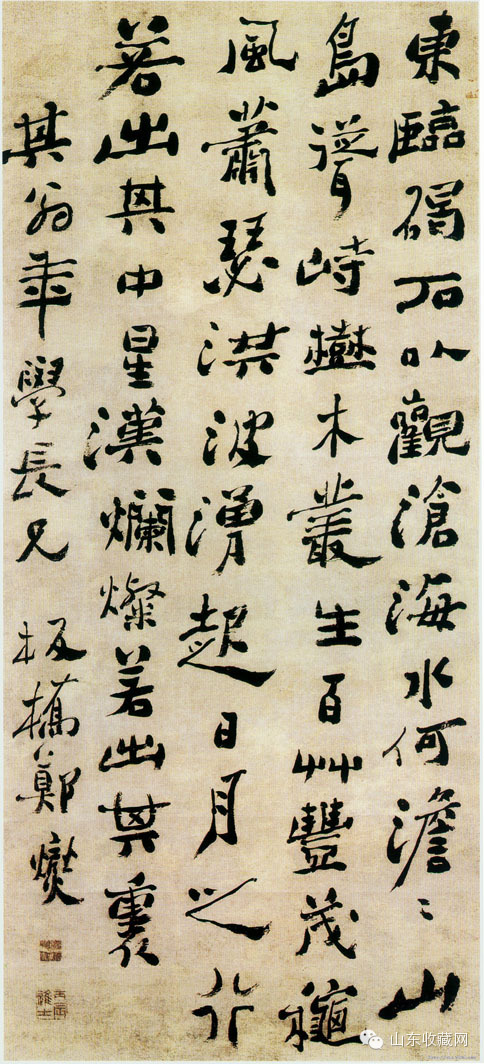 東臨碣石以觀滄海水何澹〻山
島聳峙樹木叢生百艸豐茂穐
風蕭瑟洪波湧起日月之行
若出其中星漢爛燦若出其裏
其翁年學長兄 板橋鄭燮
丙辰進士
山东收藏网